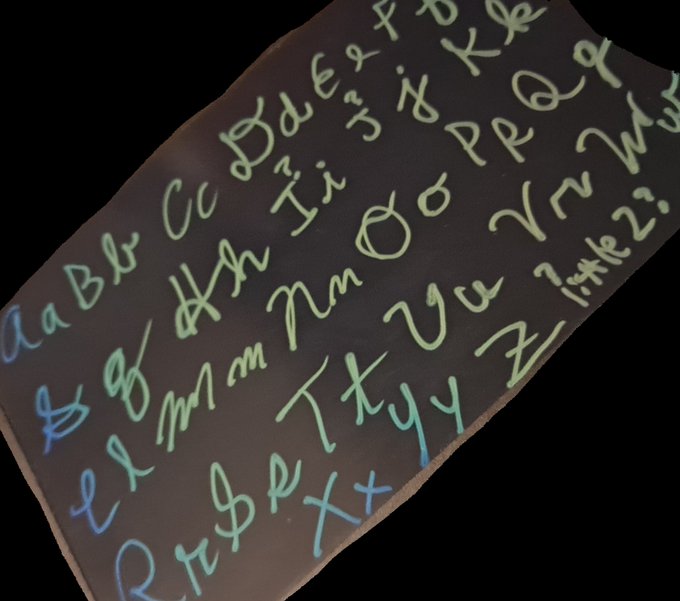 Aa Bb Cc Dd Ee Ff
? ?
Gg Hh Ii Jj Kk
Ll Mm Nn Oo Pp Qq
Rr Ss Tt Uu Vv Ww
Xx Yy Z ? little z?